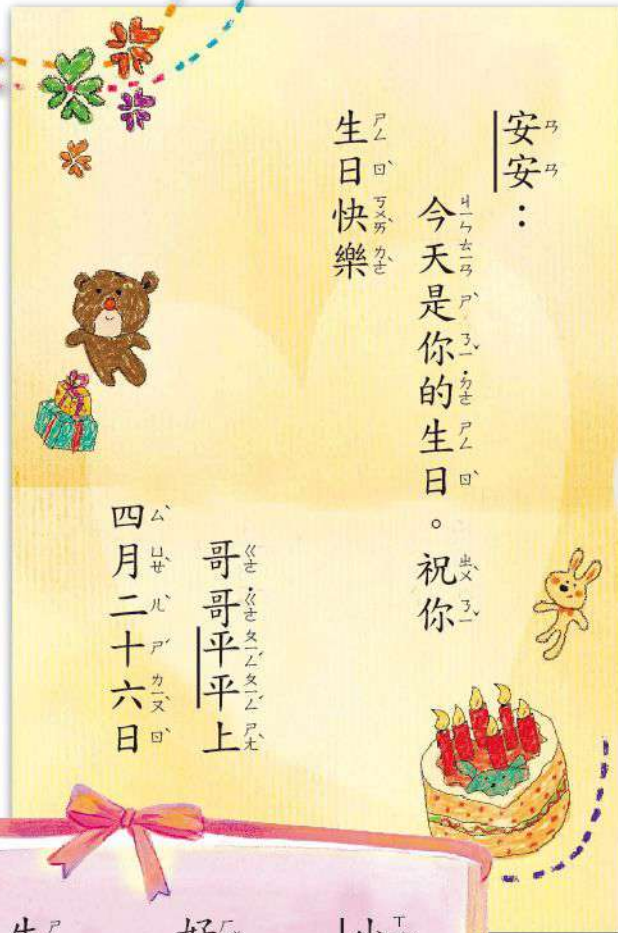 安安：
今天是你的生日。祝你
生日快樂
哥哥平平上
四月二十六日
好
生